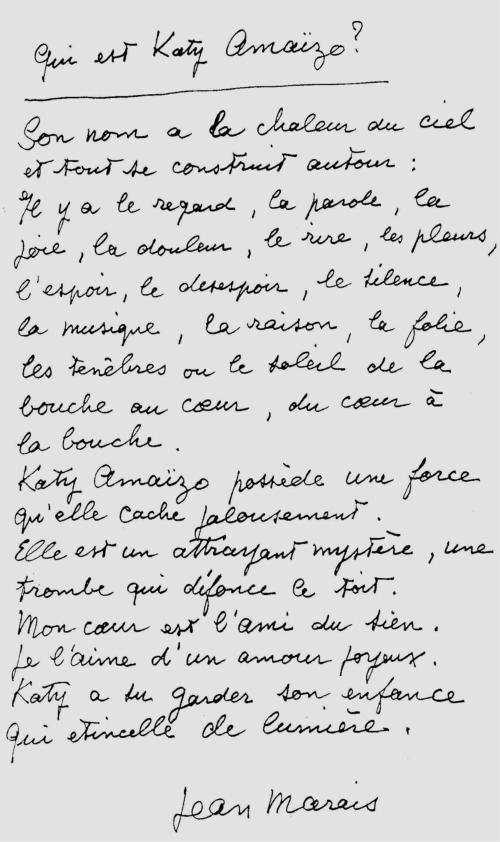 Qui est Katy Amaïzo?
Son nom a la chaleur du ciel
et tout se construit autour :
Il y a le regard, la parole, la
joie, la douleur, le rire, les pleurs,
l'espoir, le desespoir, le silence,
la musique, la raison, la folie,
les tenèbres ou le soleil de la
bouche au cœur, du cœur à
la bouche.
Katy Amaïzo possède une force
qu'elle cache jalousement.
Elle est un attrayant mystère, une
trombe qui défonce le toit.
Mon cœur est l'ami du sien.
Je l'aime d'un amour joyeux.
Katy a su garder son enfance
qui etincelle de lumière.
Jean Marais